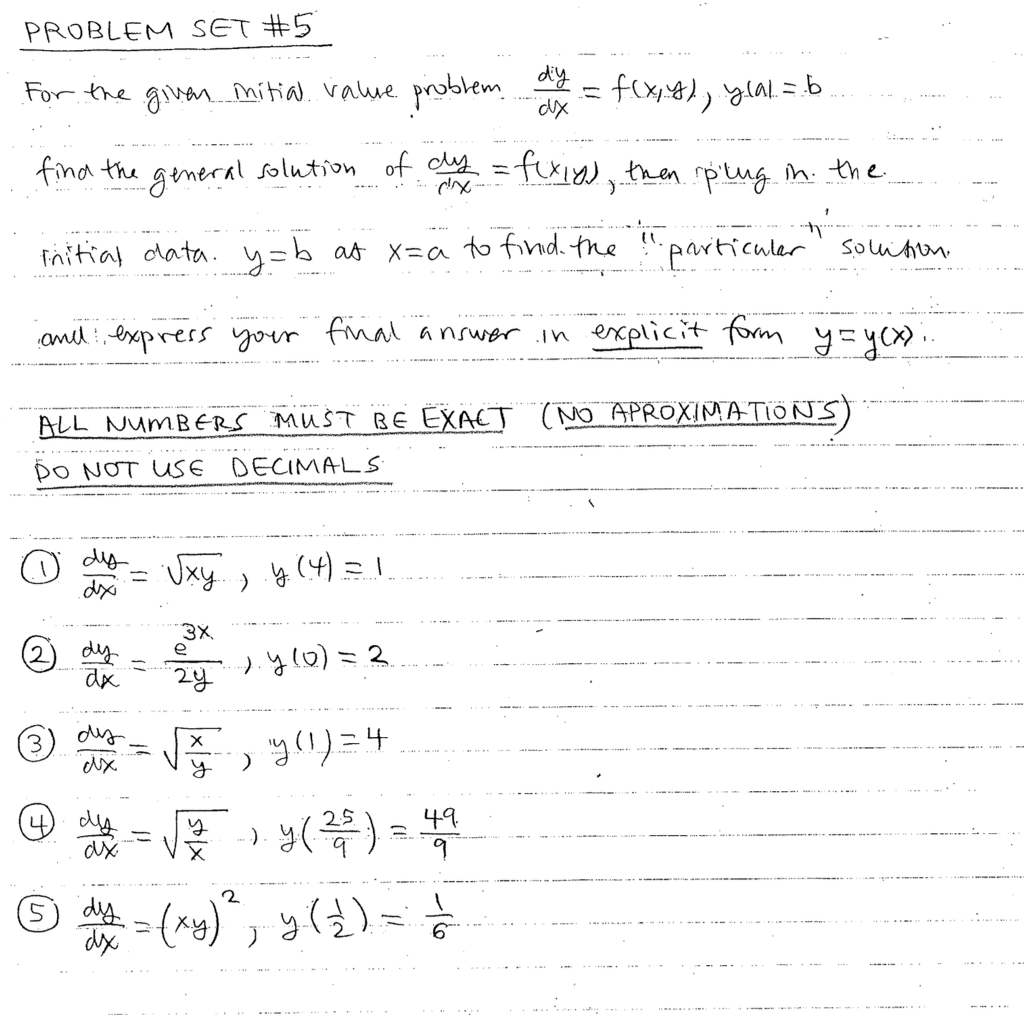 PROBLEM SET #5
For the given initial value problem dy/dx = f(x,y), y(a) = b
find the general solution of dy/dx = f(x,y), then plug in the
initial data y=b at x=a to find the "particular" solution
and express your final answer in explicit form y=y(x).
ALL NUMBERS MUST BE EXACT (NO APROXIMATIONS)
DO NOT USE DECIMALS
① dy/dx = √xy , y(4) = 1
② dy/dx = e^3x/2y , y(0) = 2
③ dy/dx = √(x/y) , y(1) = 4
④ dy/dx = √(y/x) , y(25/9) = 49/9
⑤ dy/dx = (xy)² , y(1/2) = 1/6